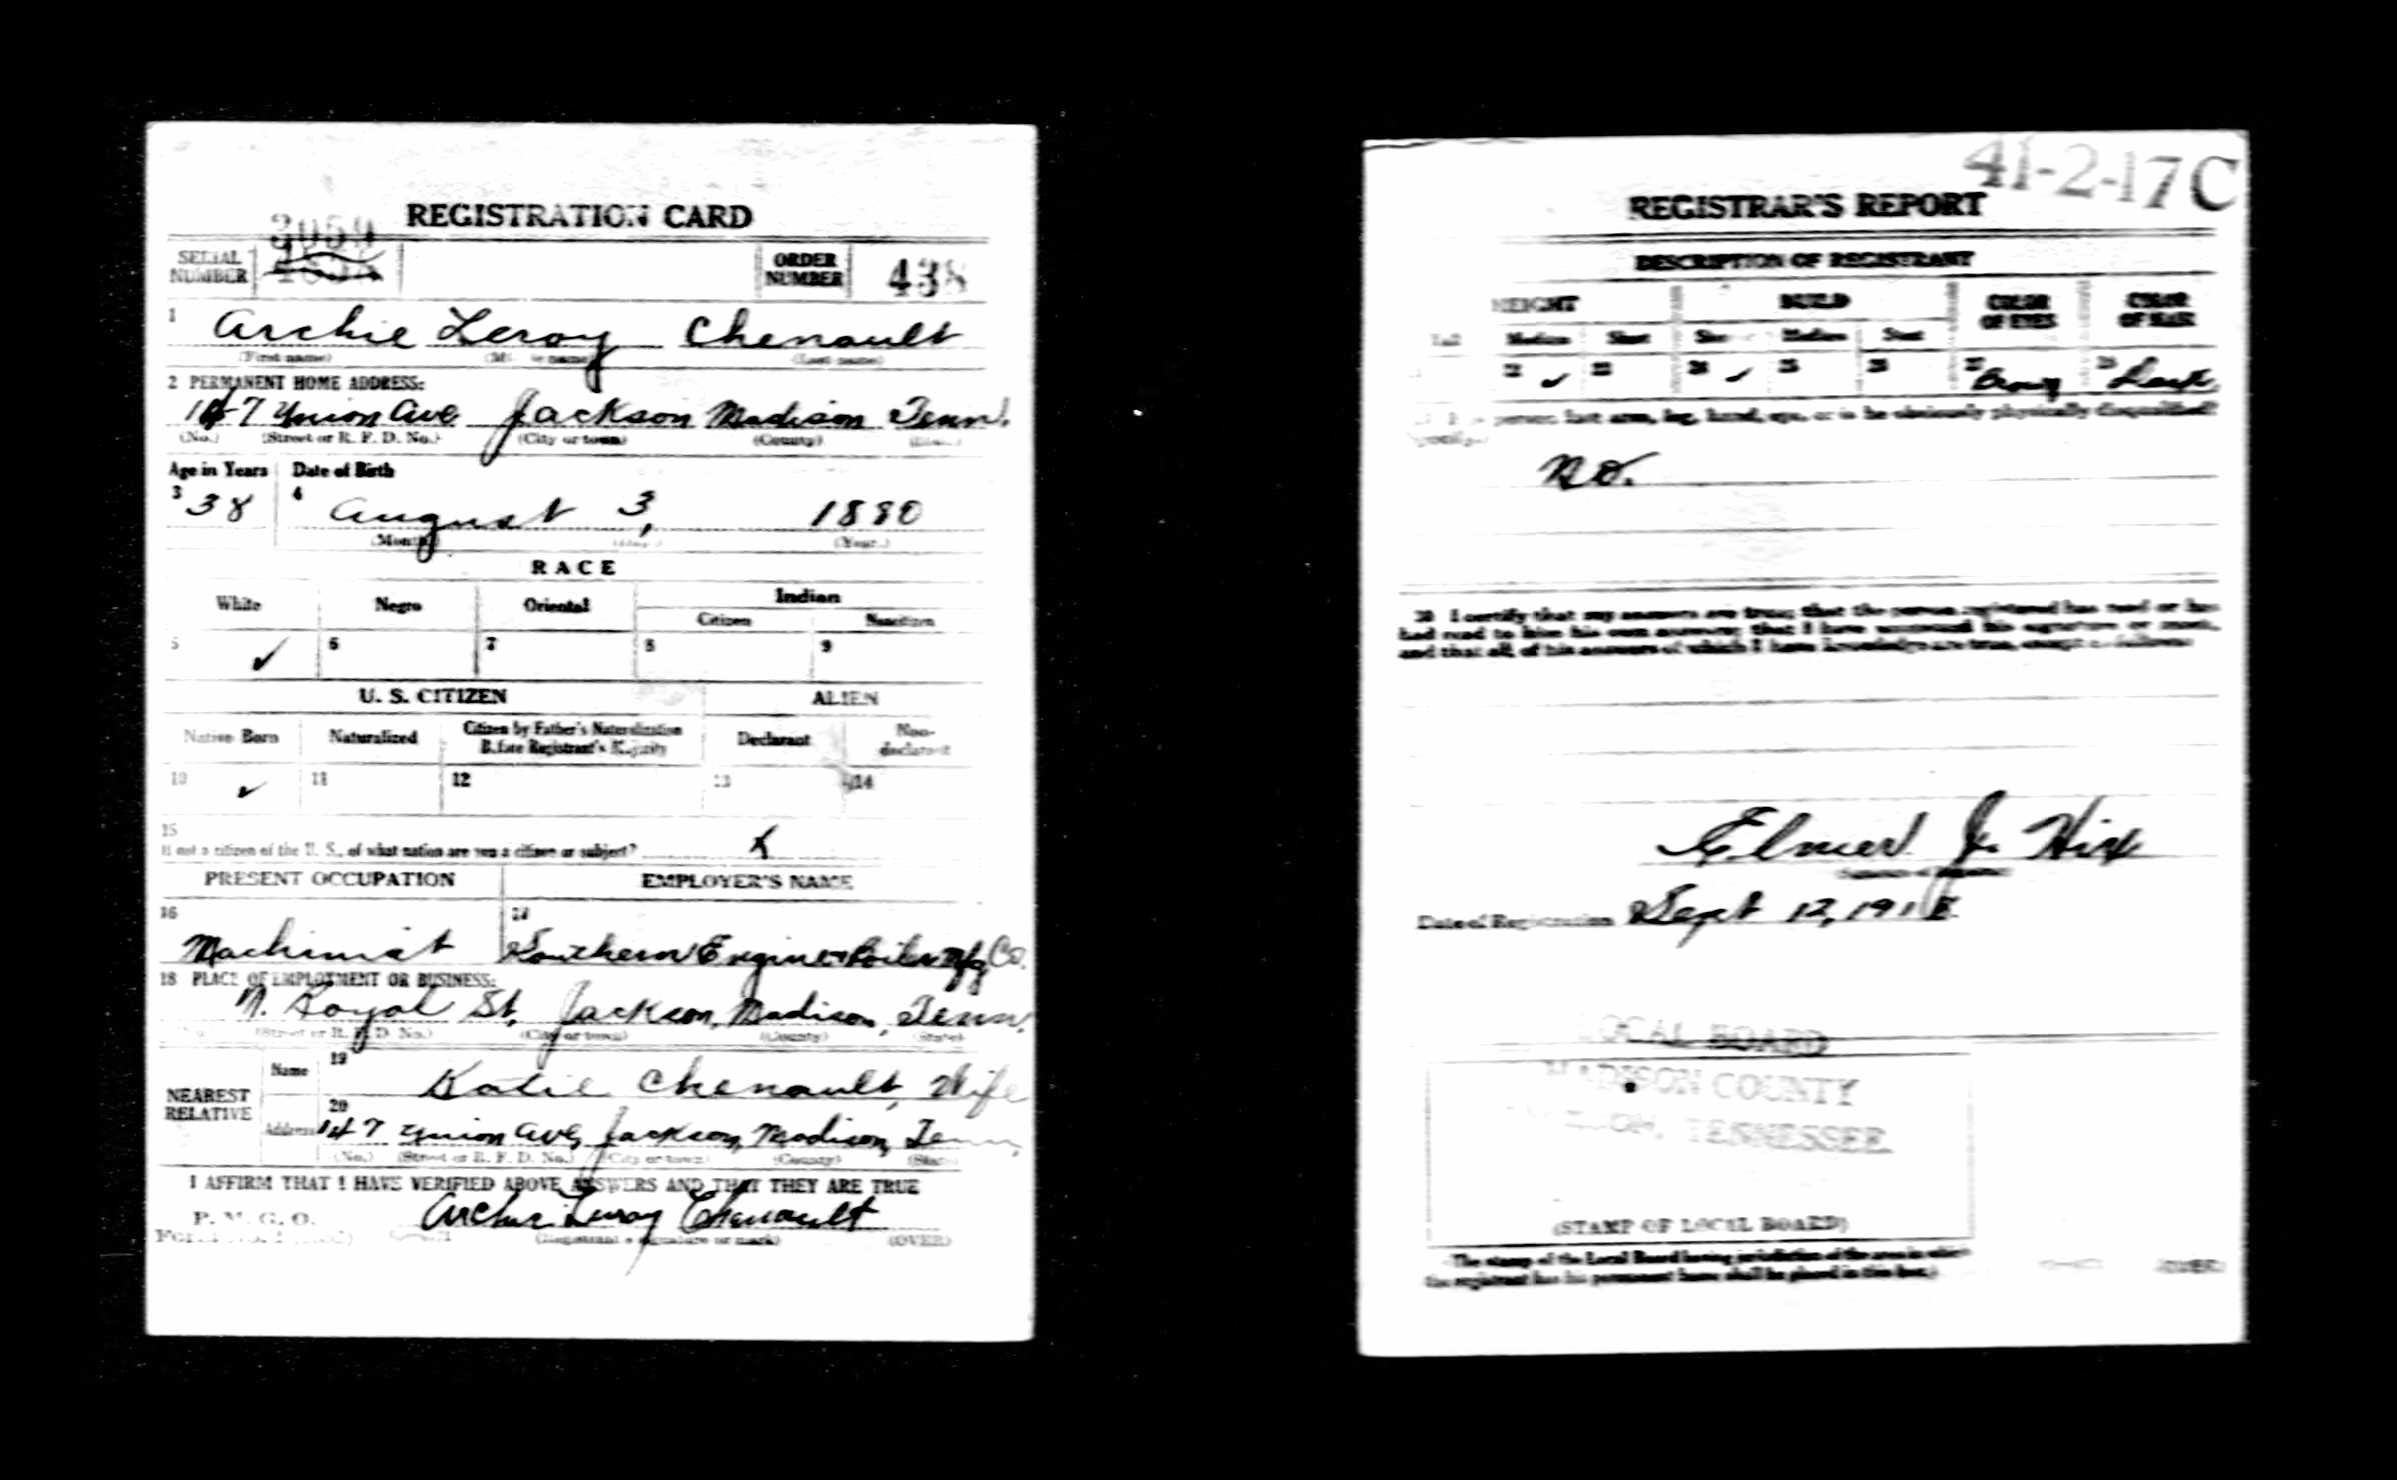 REGISTRATION CARD
SERIAL NUMBER
ORDER NUMBER 438
1 Archie Leroy Chenault
(First name) (Middle name) (Last name)
2 PERMANENT HOME ADDRESS:
147 Union Ave Jackson Madison Tenn.
(No.) (Street or R. F. D. No.) (City or town) (County) (State)
Age in Years Date of Birth
3 38 4 August 3, 1880
(Month) (Day) (Year)
RACE
White Negro Oriental Indian
Citizen Noncitizen
5 ✓ 6 7 8 9
U. S. CITIZEN ALIEN
Native Born Naturalized Citizen by Father's Naturalization Before Registrant's Majority Declarant Non-declarant
10 ✓ 11 12 13 14
15
If not a citizen of the U. S., of what nation are you a citizen or subject? x
PRESENT OCCUPATION EMPLOYER'S NAME
16 Machinist 17 Southern Engine & Boiler Mfg Co.
18 PLACE OF EMPLOYMENT OR BUSINESS:
N. Royal St. Jackson, Madison, Tenn.
(No.) (Street or R. F. D. No.) (City or town) (County) (State)
NEAREST RELATIVE
Name 19 Katie Chenault, Wife
Address 20 147 Union Ave, Jackson, Madison, Tenn,
(No.) (Street or R. F. D. No.) (City or town) (County) (State)
I AFFIRM THAT I HAVE VERIFIED ABOVE ANSWERS AND THAT THEY ARE TRUE
P. M. G. O.
Archie Leroy Chenault
(Registrant's signature or mark) (OVER)
41-2-17 C
REGISTRAR'S REPORT
DESCRIPTION OF REGISTRANT
HEIGHT BUILD COLOR OF EYES COLOR OF HAIR
Tall Medium Short Slender Medium Stout
22 ✓ 23 24 ✓ 25 26 27 28 Dark
person lost arm, leg, hand, eye, or is he obviously physically disqualified?
No.
30 I certify that my answers are true; that the person registered has read or has
had read to him his own answers; that I have witnessed his signature or mark,
and that all of his answers of which I have knowledge are true, except as follows:
Elmer J. Hix
Date of Registration Sept 12, 1918
LOCAL BOARD
MADISON COUNTY
TENNESSEE.
(STAMP OF LOCAL BOARD)
The stamp of the Local Board having jurisdiction of the area in which
the registrant has his permanent home shall be placed in this box.)
(OVER)